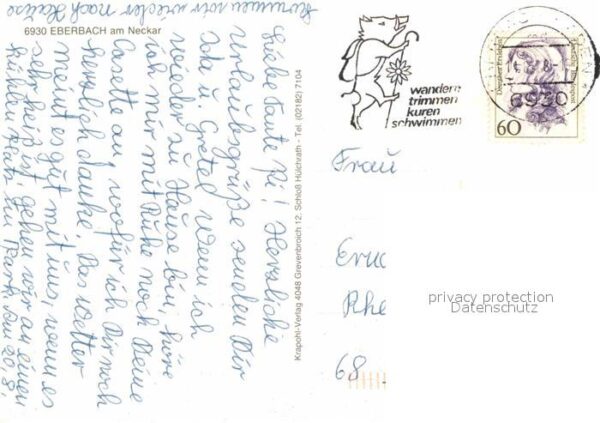 6930 EBERBACH am Neckar
Liebe Tante Ri! Herzliche
Urlaubsgrüße senden Dir
Ida u Gretel. Wenn ich
wieder zu Hause bin, höre
ich mir mit Ruhe noch Deine
Casette an, wofür ich Dir noch
herzlich danke. Das Wetter
meint es gut mit uns, wenn es
sehr heiß ist, gehen wir an einen
kühlen Platz im Park. Am 20.8.
kommen wir wieder nach Hause
Krapohl-Verlag 4048 Grevenbroich 12, Schloß Hülchrath - Tel. (02182) 7104
wandern
trimmen
kuren
schwimmen
6930
60
Frau
Rhe
68
privacy protection
Datenschutz